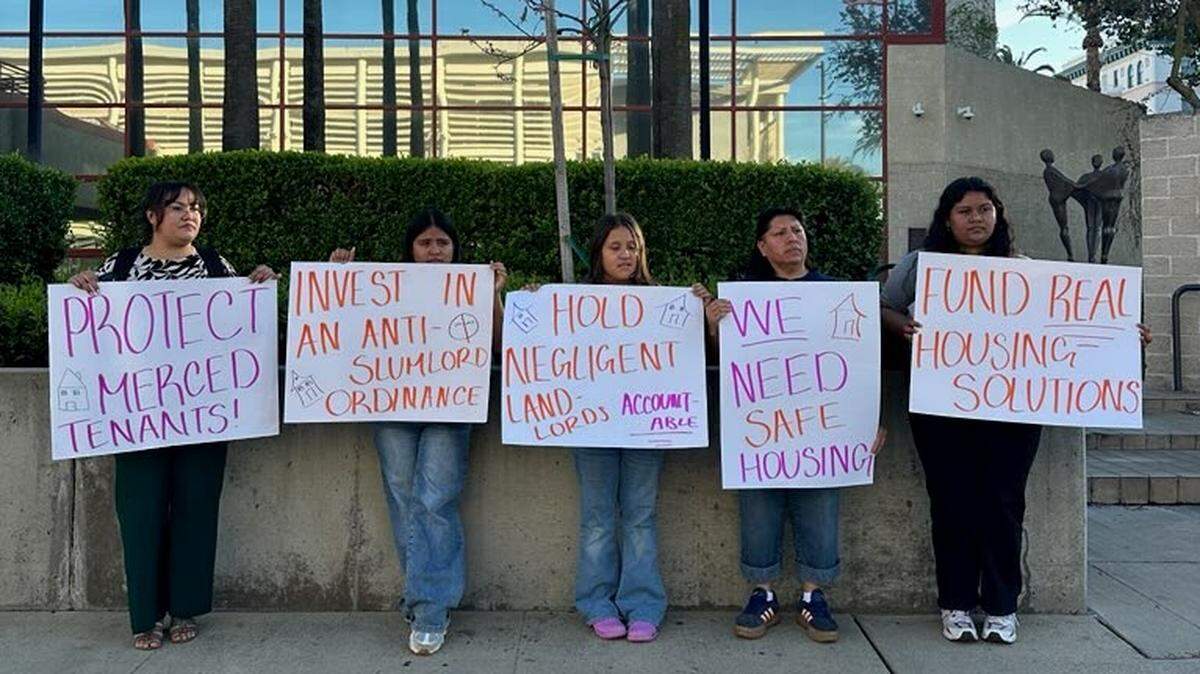 PROTECT
MERCED
TENANTS!
INVEST IN
AN ANTI-
SLUMLORD
ORDINANCE
HOLD
NEGLIGENT
LAND-
LORDS
ACCOUNT-
ABLE
WE
NEED
SAFE
HOUSING
FUND REAL
HOUSING
SOLUTIONS